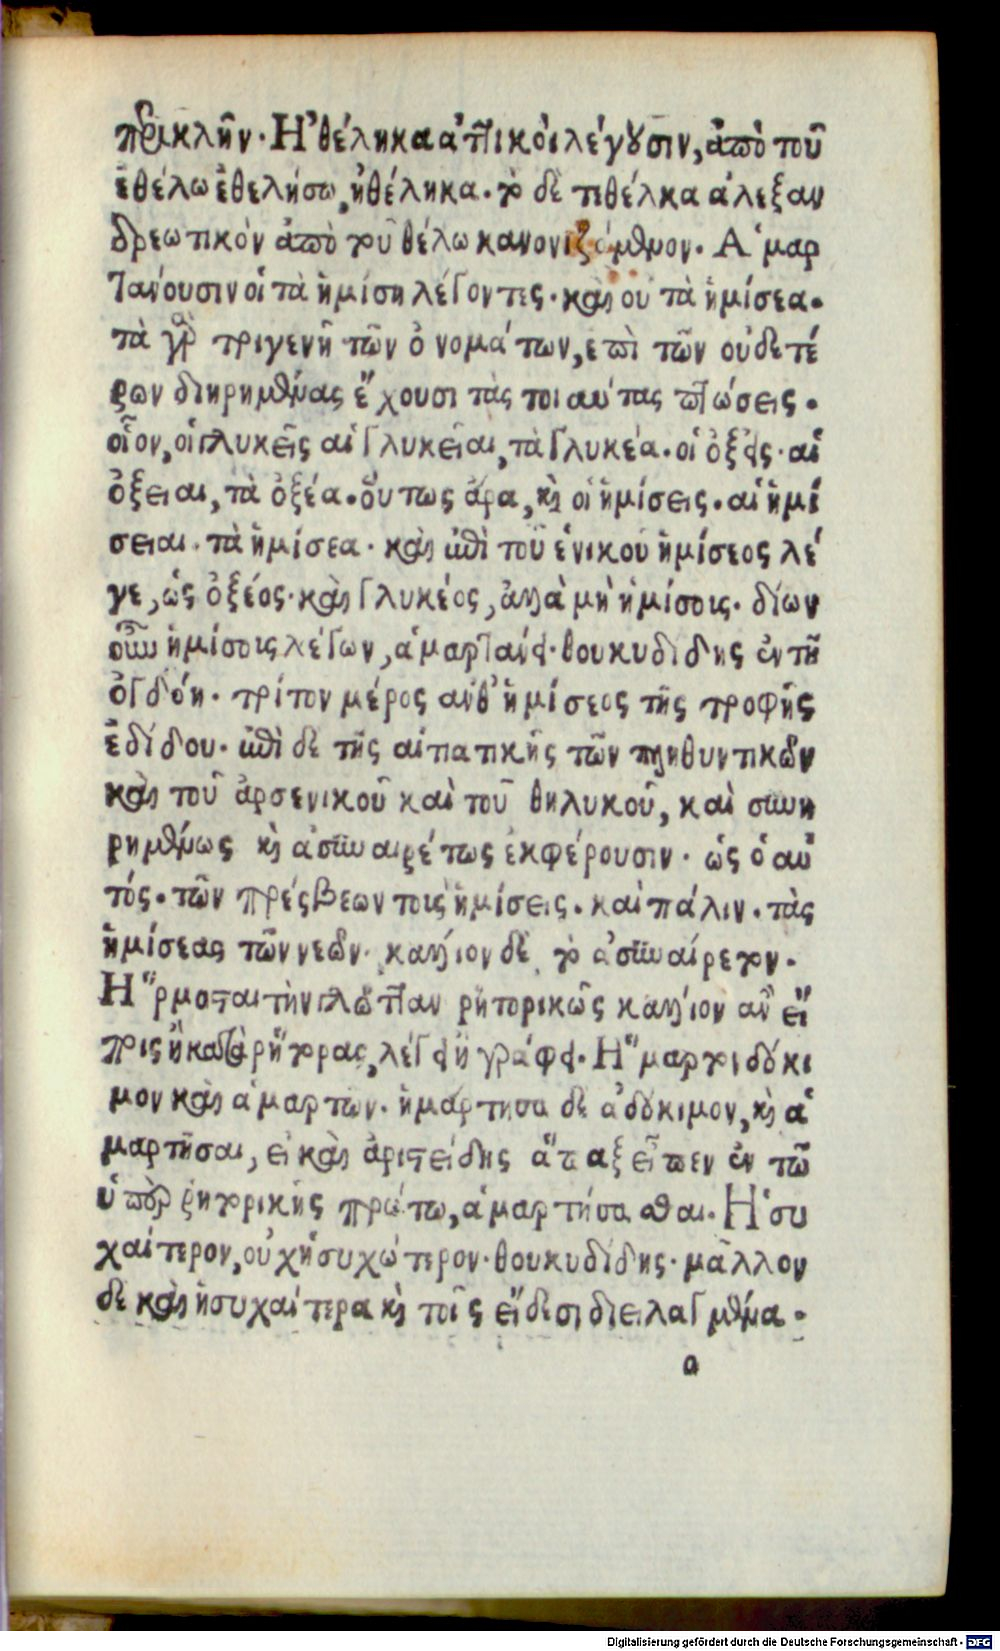 περικλῆν. Ἠθέληκα ἀττικοὶ λέγουσιν, ἀπὸ τοῦ
ἐθέλω ἐθελήσω, ἠθέληκα. τὸ δὲ τιθέλκα ἀλεξαν
δρεωτικὸν ἀπὸ τοῦ θέλω κανονιζόμενον. Ἁμαρ
τάνουσιν οἱ τὰ ἡμίση λέγοντες. καὶ οὐ τὰ ἡμίσεα.
τὰ γὰρ τριγενῆ τῶν ὀνομάτων, ἐπὶ τῶν οὐδετέ
ρων διηρημένας ἔχουσι τὰς τοιαύτας πτώσεις.
οἷον, οἱ γλυκεῖς αἱ γλυκεῖαι, τὰ γλυκέα. οἱ ὀξεῖς. αἱ
ὀξεῖαι, τὰ ὀξέα. οὕτως ἄρα, καὶ οἱ ἡμίσεις. αἱ ἡμί
σειαι. τὰ ἡμίσεα. καὶ ἐπὶ τοῦ ἑνικοῦ ἡμίσεος λέ
γε, ὡς ὀξέος. καὶ γλυκέος, ἀλλὰ μὴ ἡμίσοις. δίων
οὖν ἡμίσοις λέγων, ἁμαρτάνει. θουκυδίδης ἐν τῇ
ὀγδόῃ. τρίτον μέρος ἀνθ' ἡμίσεος τῆς τροφῆς
ἐδίδου. ἐπὶ δὲ τῆς αἰτιατικῆς τῶν πληθυντικῶν
καὶ τοῦ ἀρσενικοῦ καὶ τοῦ θηλυκοῦ, καὶ συνῃ
ρημένως καὶ ἀσυναιρέτως ἐκφέρουσιν. ὡς ὁ αὐ
τός. τῶν πρέσβεων τοὺς ἡμίσεις. καὶ πάλιν. τὰς
ἡμίσεας τῶν νεῶν. κάλλιον δὲ τὸ ἀσυναίρετον.
Ἥρμοσται τὴν γλῶτταν ῥητορικῶς κάλλιον ἂν εἴ
ποις ἢ κατὰ ῥήτορας, λέγει ἢ γράφει. Ἥμαρτοι δόκι
μον καὶ ἁμαρτών. ἡμάρτησα δὲ ἀδόκιμον, καὶ ἁ
μαρτῆσαι, εἰ καὶ ἀριστείδης ἅπαξ εἶπεν ἐν τῷ
ὑπὲρ ῥητορικῆς πρώτῳ, ἁμαρτήσασθαι. Ἡσυ
χαίτερον, οὐχ ἡσυχώτερον. θουκυδίδης. μᾶλλον
δὲ καὶ ἡσυχαίτερα καὶ τοῖς εἴδεσι διειλαγμένα.
a
Digitalisierung gefördert durch die Deutsche Forschungsgemeinschaft - DFG